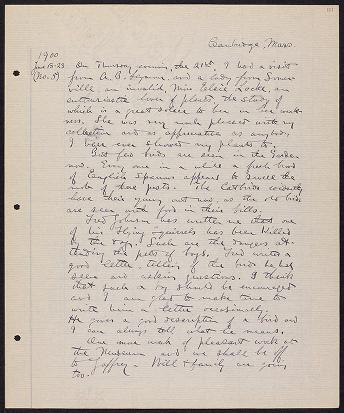 Cambridge, Mass.
1900
June 15-23
(No. 5)
On Thursday evening, the 21st, I had a visit
from A. B. Seymour and a lady from Somer
ville, an invalid, Miss Elsie Locke, an
enthusiastic lover of plants, the study of
which is a great solace to her in her weak-
ness. She was very much pleased with my
collection and as appreciative as anybody
I have ever shown my plants to.
But few birds are seen in the Garden
now. Every once in a while a fresh brood
of English Sparrows appears to swell the
number of these pests. The Catbirds evidently
have their young out now, as the old birds
are seen with food in their bills.
Fred Johnson has written me that one
of his Flying Squirrels has been killed
by the dog. Such are the dangers at-
tending the pets of boys. Fred writes a
good letter, telling of the birds he has
seen and asking questions. I think
that such a boy should be encouraged
and I am glad to make time to
write him a letter occasionally.
He gives a good description of a bird and
I can always tell what he means.
One more week of pleasant work at
the Museum and we shall be off
to Jaffrey. Will & family are going
too.